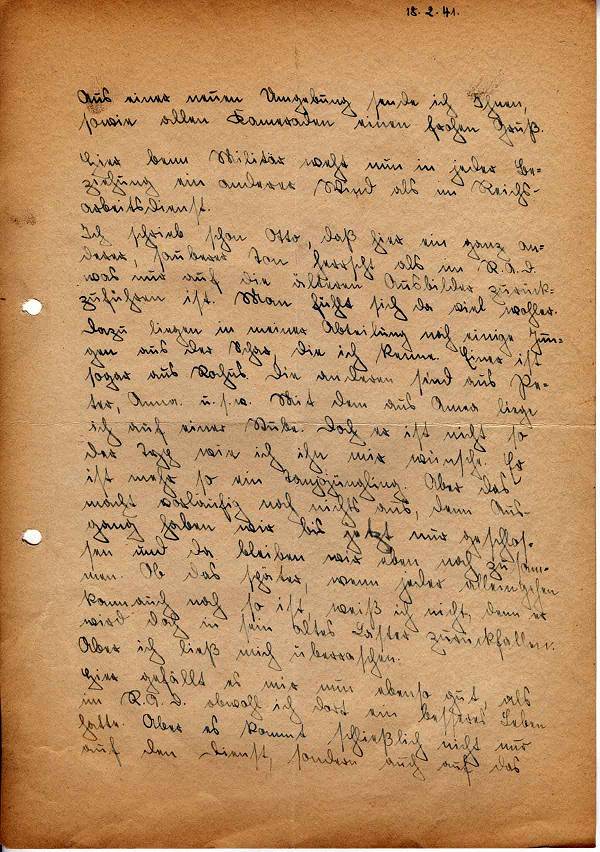 18.2.41.
Aus einer neuen Umgebung sende ich Ihnen,
sowie allen Kameraden einen frohen Gruß.
Hier beim Militär weht nun in jeder Be=
ziehung ein anderer Wind als im Reichs-
arbeitsdienst.
Ich schrieb schon Otto, daß hier ein ganz an=
derer, sauberer Ton herrscht als im R.A.D.
was nur auf die älteren Ausbilder zurück=
zuführen ist. Man fühlt sich da viel wohler.
Dazu liegen in meiner Abteilung noch einige Jun=
gen aus der Schar, die ich kenne. Einer ist
sogar aus Rochus. Die anderen sind aus Pe=
ter, Anna. u.s.w. Mit dem aus Anna liege
ich auf einer Stube. Doch er ist nicht so
der Typ wie ich ihn mir wünsche. Er
ist mehr so ein Tanzjüngling. Aber das
macht vorläufig noch nichts aus, denn Aus=
gang haben wir bis jetzt nur geschlos=
sen und da bleiben wir eben noch zusam=
men. Ob das später, wenn jeder allein gehen
kann auch noch so ist, weiß ich nicht, denn er
wird doch in sein altes Laster zurückfallen.
Aber ich ließ mich überraschen.
Hier gefällt es mir nun ebenso gut, als
im R.A.D. obwohl ich dort ein besseres Leben
hatte. Aber es kommt schließlich nicht nur
auf den Dienst, sondern auch auf das